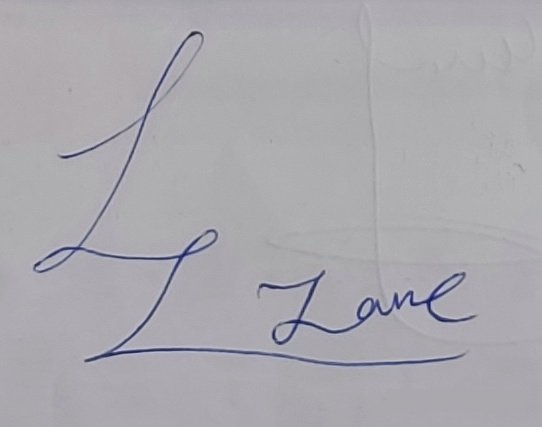 LL Lane